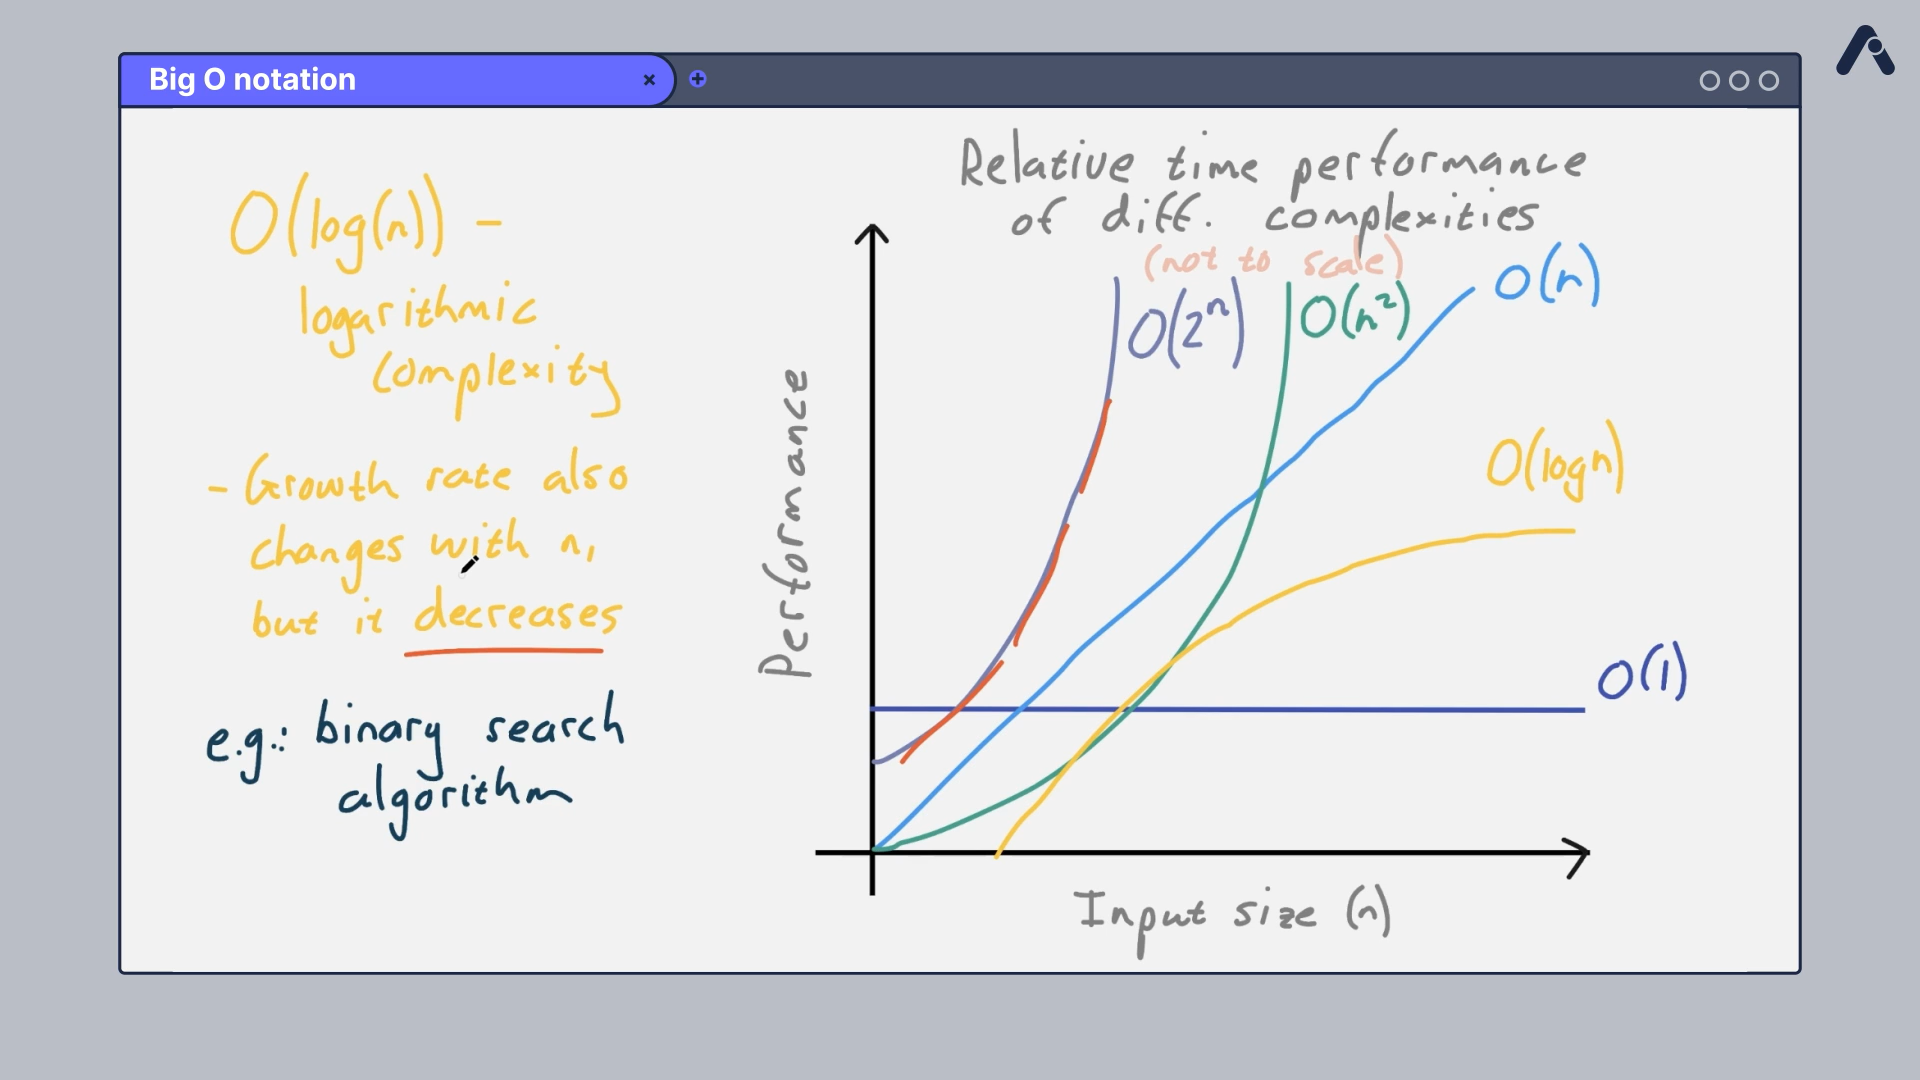 Big O notation
O(log(n)) -
logarithmic
complexity
- Growth rate also
changes with n,
but it decreases
e.g.: binary search
algorithm
Relative time performance
of diff. complexities
(not to scale)
O(2ⁿ)
O(n²)
O(n)
O(logn)
O(1)
Performance
Input size (n)